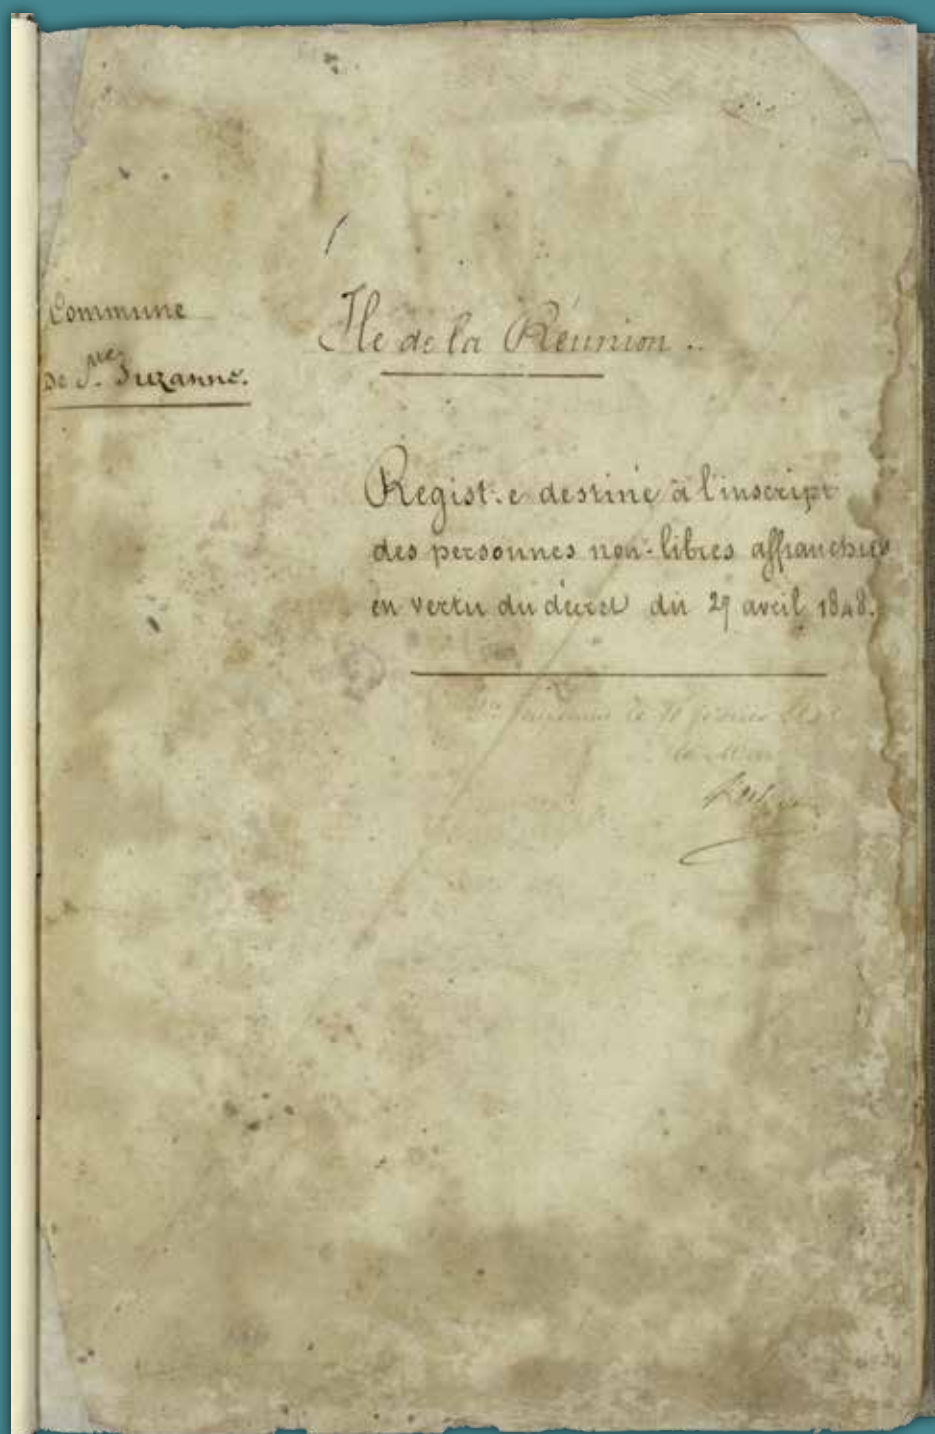 Commune
De Ste Suzanne.
Ile de la Réunion ..
Regist.e destiné à l'inscript
des personnes non-libres affranchies
en vertu du décret du 27 avril 1848.
le